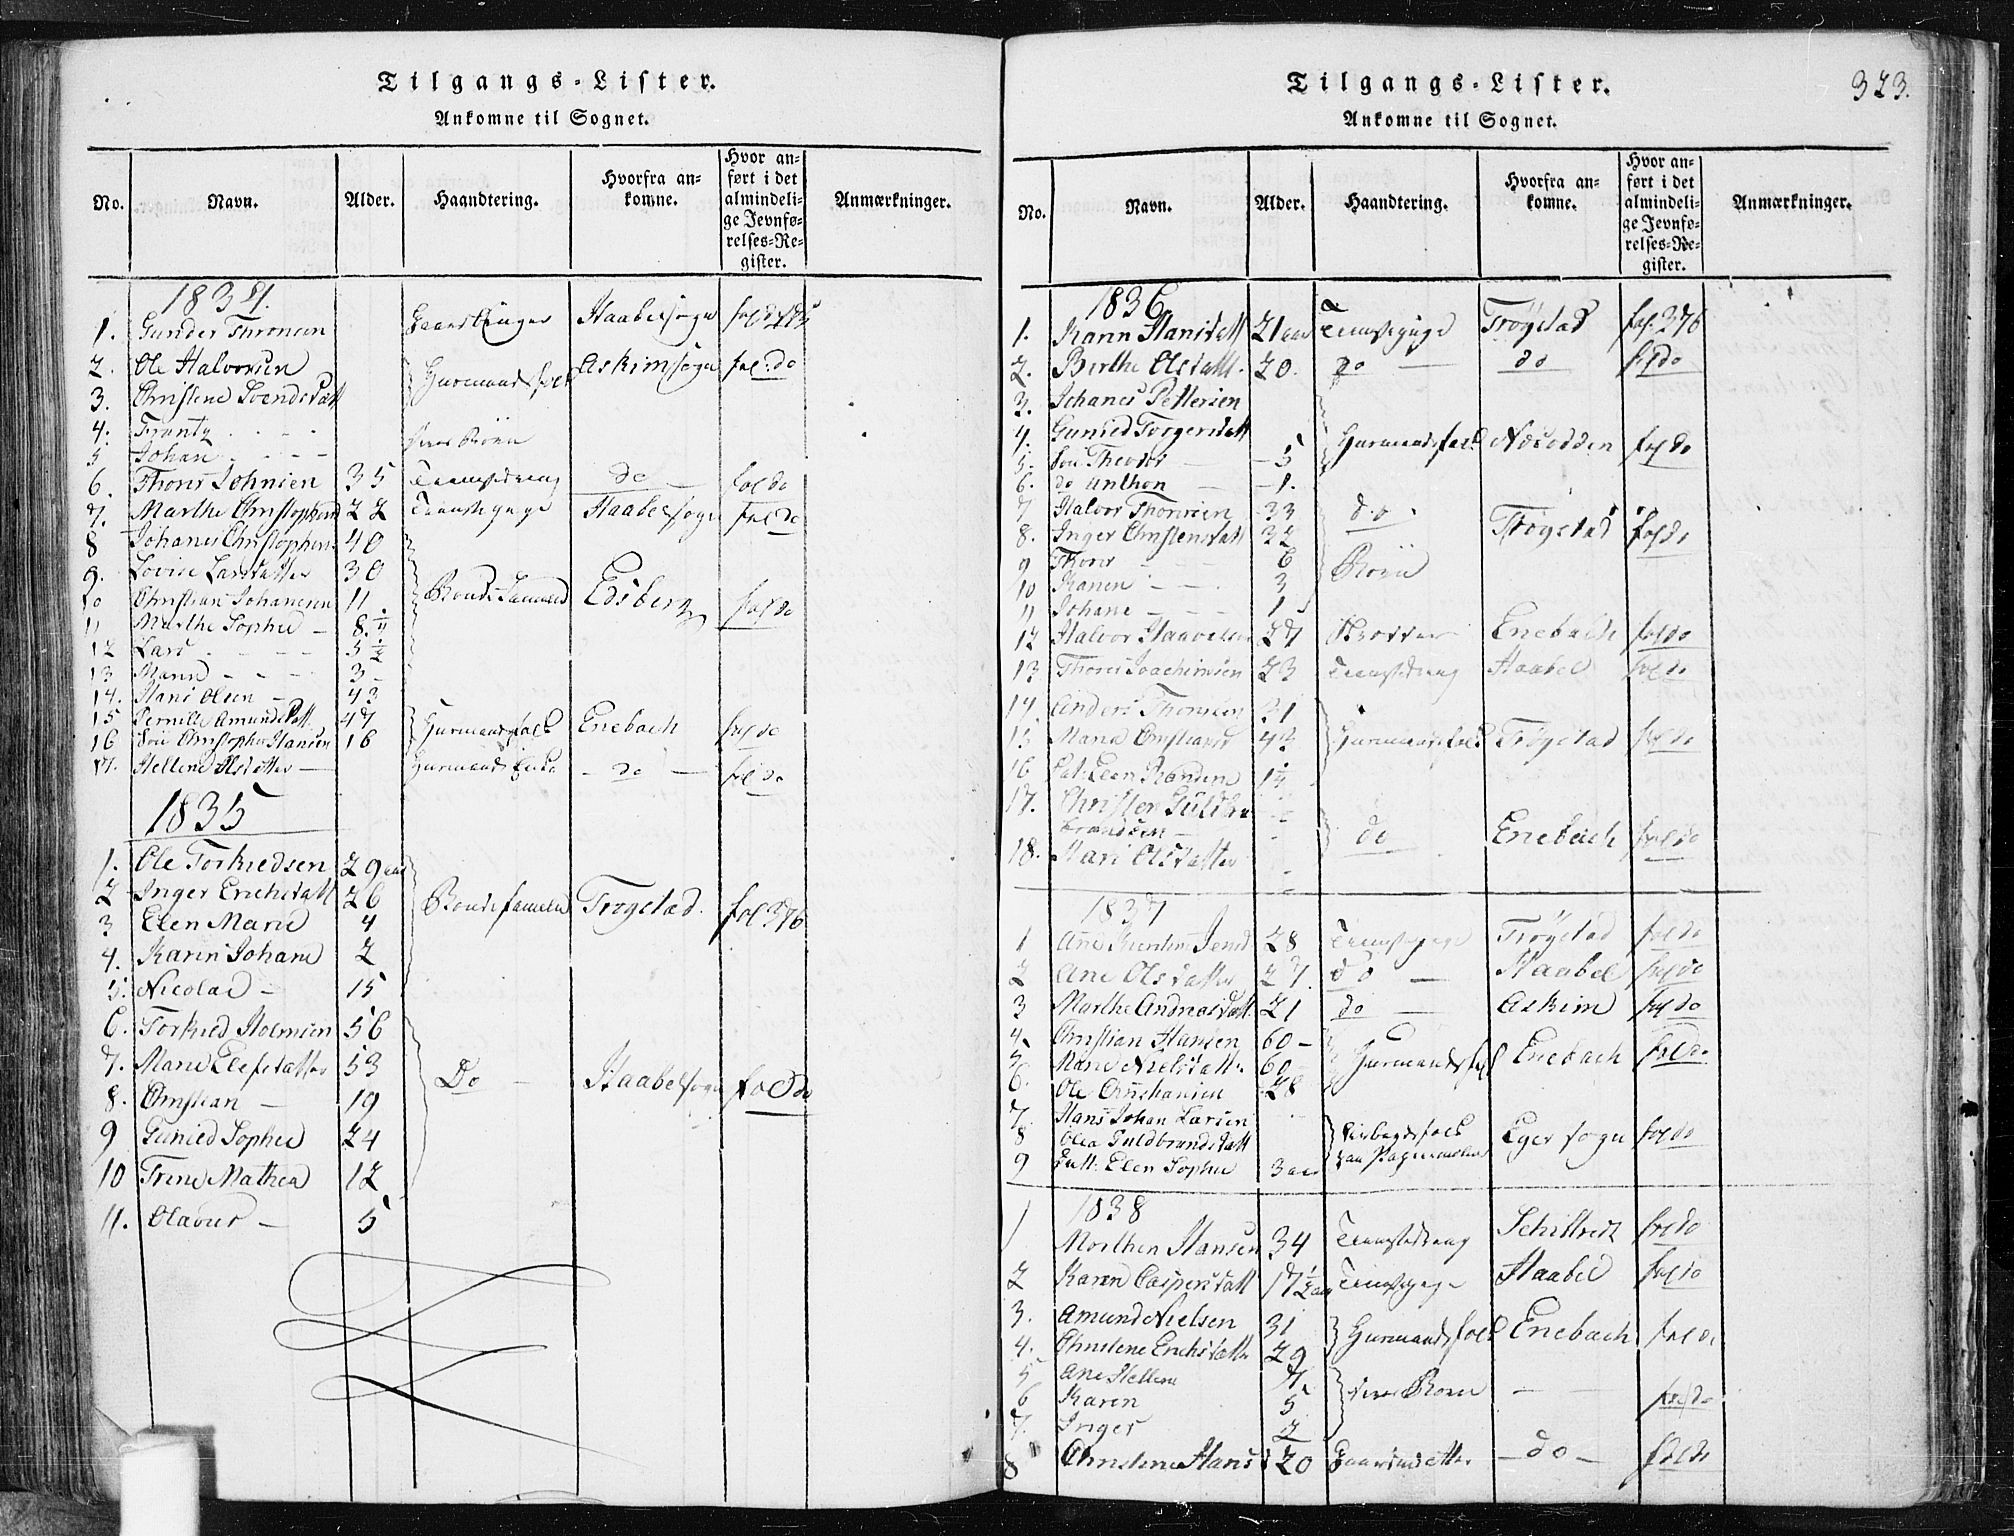 Tilgangs-Lister.
Ankomne til Sognet.
No. Navn. Alder. Haandtering. Hvorfra ankomne. Hvor anført i det almindelige Jevnførelses-Register. Anmærkninger.
1834.
1. Gunder Thronsen Haabelsogn
2. Ole Halvorsen Huusmandsfolk Askimsogn fol: do
3. Christene Svendsdatt
4. Frantz
5 Johan
6. Thorer Johnsen 35 Tienestedreng do fol do
7. Marthe Christophersd 22 Tienstepige Haabelsogn fol do
8 Johanes Christophers 40
9. Lovise Larsdatter 30
10 Christian Johanesen 11 Bonde Familie Edsberg fol do
11 Marthe Sophie 8 1/4
12 Lars 5 1/2
13 Maria 3
14. Hans Olsen 43
15 Pernille Amundsdatt. 47 Huusmandsfolk Enebach fol do
16 Søn Christopher Hansen 16
17. Hellene Olsdatter Huusmands Enke do fol do
1835
1. Ole Torkiedsen 29 aar
2 Inger Erichsdatt 26 Bonde familie Trøgstad. fol 376
3 Elen Marie 4
4. Karin Johane 2
5. Nicolai 15
6. Torkied Holmsen 56
7. Marie Elefsdatter 53 Do Haabelsogn fol do
8. Christian 19
9 Gunied Sophie 24
10 Trine Mathea 12
11. Olavus 5
Tilgangs-Lister.
Ankomne til Sognet.
323.
No. Navn. Alder. Haandtering. Hvorfra ankomne. Hvor anført i det almindelige Jevnførelses-Register. Anmærkninger.
1836
1. Karin Hansdatt 21 aar Tienstepige Trøgstad fol. 376
2. Birthe Olsdatt. 20. do do fol do
3. Johanes Pettersen
4. Gunied Torgersdatt Huusmandsfolk Næsodden fol do
5. Søn Theodor 5
6. do Anthon 1.
7 Halvor Thorersen 33 do Trøgstad fol do
8. Inger Christensdatt 32
9 Thorer 6 Børn
10 Karen 3
11 Johane 1
12 Halvor Haavelsen 27 Enebach fol do
13 Thorer Joachimsen 23 Tienstedreng Haabel fol do
14. Anders Thorersen 31
15 Maria Christians 42 Huusmandsfolk Trøgstad fol do
16
17. Christen Guldbrandsen do Enebach fol do
18. Mari Olsdatter
1837
1 Ane Kirstine Jensd 28 Tienstepige Trøgstad fol do
2 Ane Olsdatter 27. do Haabel fol do
3 Marthe Andreasdatt. 21 do Askim fol do
4. Christian Hansen 60
5. Marie Nielsdatt. 60 Huusmandsfolk Enebach fol do
6. Ole Christiansen 28
7 Hans Johan Larsen
8 Olea Guldbrandsdatt Eger sogn fol do
9 Datt: Elen Sophie 3 aar
1838
1 Morthen Hansen 34 Tienstedreng fol do
2 Karen Caspersdatt 17 1/2 aar Tienstepige Haabel fol do
3. Amund Nielsen 31 Huusmandsfolk Enebach fol do
4. Christene Erichsdatt. 29
5 Ane Hellene 7. deres Børn fol do
6 Karen 5
7. Inger 2
8 Christene Hansd 20 Gaardsdatter do fol do